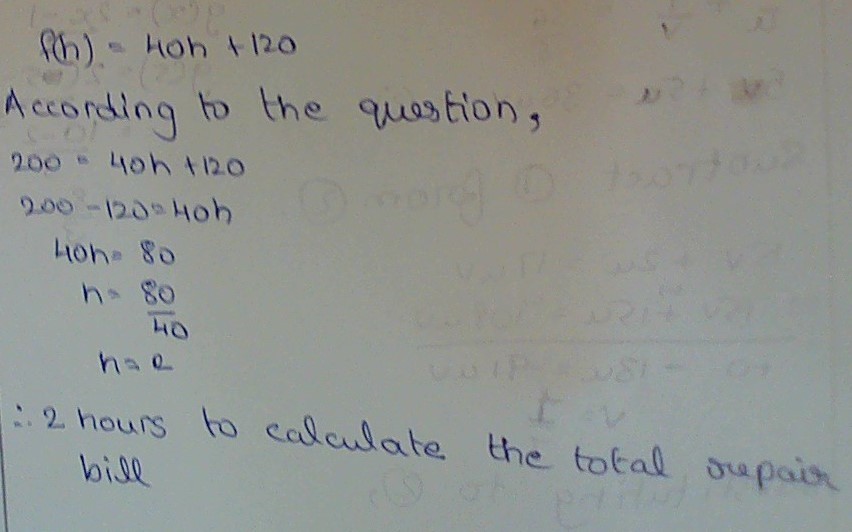 f(h) = 40h + 120
According to the question,
200 = 40h + 120
200 - 120 = 40h
40h = 80
h = 80
40
h = 2
∴ 2 hours to calculate the total repair
bill